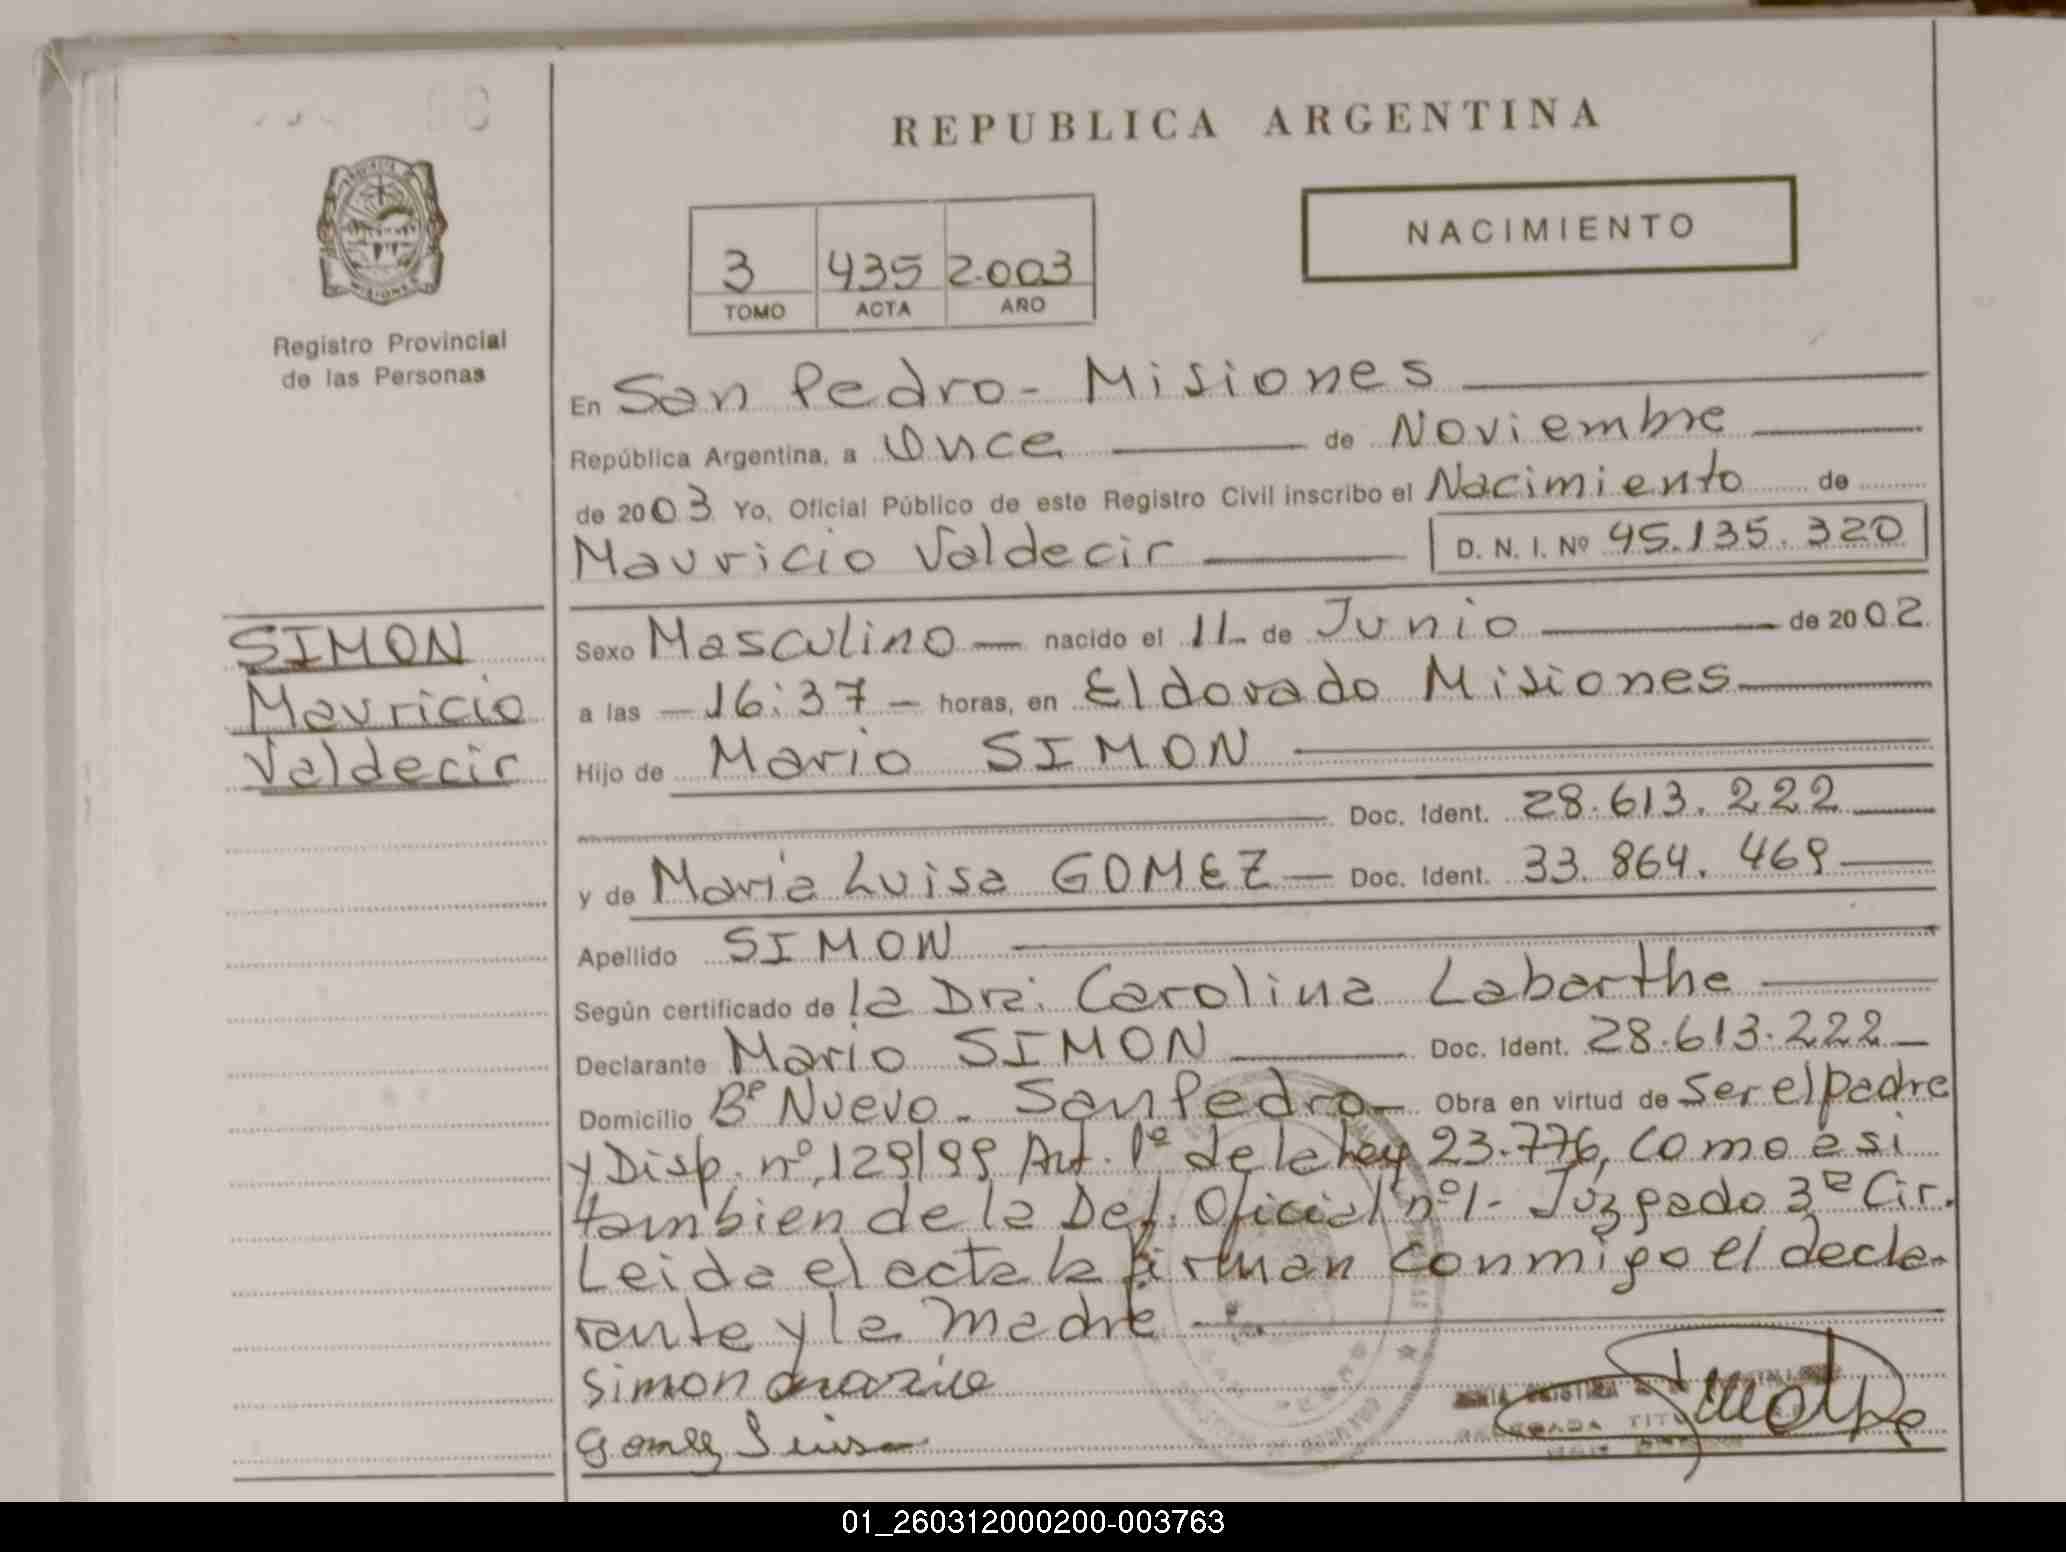 REPUBLICA ARGENTINA
NACIMIENTO
3 435 2.003
TOMO ACTA AÑO
Registro Provincial
de las Personas
En San Pedro - Misiones
República Argentina, a Once de Noviembre
de 2003 Yo, Oficial Público de este Registro Civil inscribo el Nacimiento de
Mauricio Valdecir D. N. I. Nº 45.135.320
SIMON
Mauricio
Valdecir
Sexo Masculino — nacido el 11 de Junio de 2002
a las — 16:37 — horas, en Eldorado Misiones
Hijo de Mario SIMON
Doc. Ident. 28.613.222
y de Maria Luisa GOMEZ — Doc. Ident. 33.864.469
Apellido SIMON
Según certificado de la Dra. Carolina Labarthe
Declarante Mario SIMON Doc. Ident. 28.613.222
Domicilio Bº Nuevo - San Pedro - Obra en virtud de Ser el padre
y Disp. nº 129/99 Art. 1º de la Ley 23.776, como asi
tambien de la Def. Oficial nº 1 - Juzgado 3ª Cir.
Leida el acta la firman conmigo el decla-
rante y la madre
Simon Mario
Gomez Luisa
01_260312000200-003763